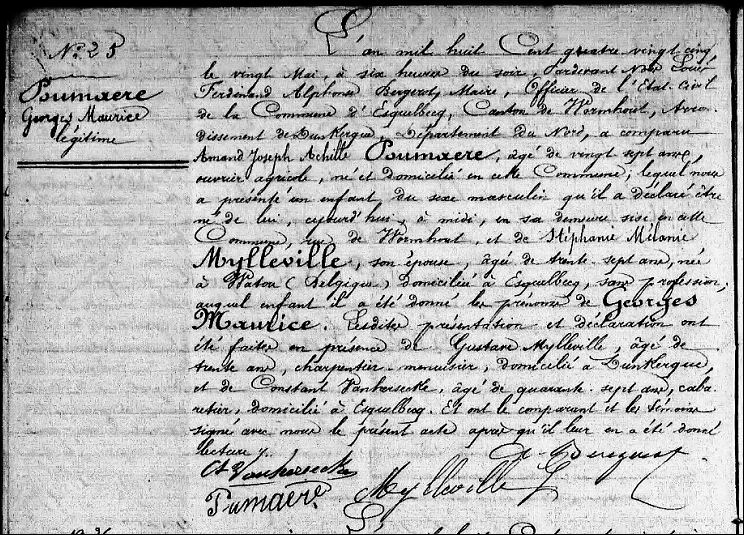 N° 25
Pumaere
Georges Maurice
légitime
L'an mil huit Cent quatre vingt cinq
le vingt Mai, à six heures du soir, Pardevant Nous Louis
Ferdinand Alphonse Bergerot, Maire, Officier de l'Etat-Civil
de la Commune d'Esquelbecq, Canton de Wormhout, Arron-
dissement de Dunkerque, Département du Nord, a comparu
Amand Joseph Achille Pumaere, âgé de vingt sept ans,
ouvrier agricole, né et domicilié en cette Commune, lequel nous
a présenté un enfant du sexe masculin qu'il a déclaré être
né de lui, cejourd'hui, à midi, en sa demeure sise en cette
Commune, rue de Wormhout, et de Stéphanie Mélanie
Mylleville, son épouse, âgée de trente-sept ans, née
à Watou (Belgique) domiciliée à Esquelbecq, sans profession,
auquel enfant il a été donné les prénoms de Georges
Maurice. Lesdites présentation et déclaration ont
été faites en présence de Gustave Mylleville, âgé de
trente ans, charpentier-menuisier, domicilié à Dunkerque,
et de Constant Vanhersecke, âgé de quarante-sept ans, caba-
retier, domicilié à Esquelbecq. Et ont le comparant et les témoins
signé avec nous le présent acte après qu'il leur en a été donné
lecture.
Ct Vanhersecke
Pumaere Mylleville G